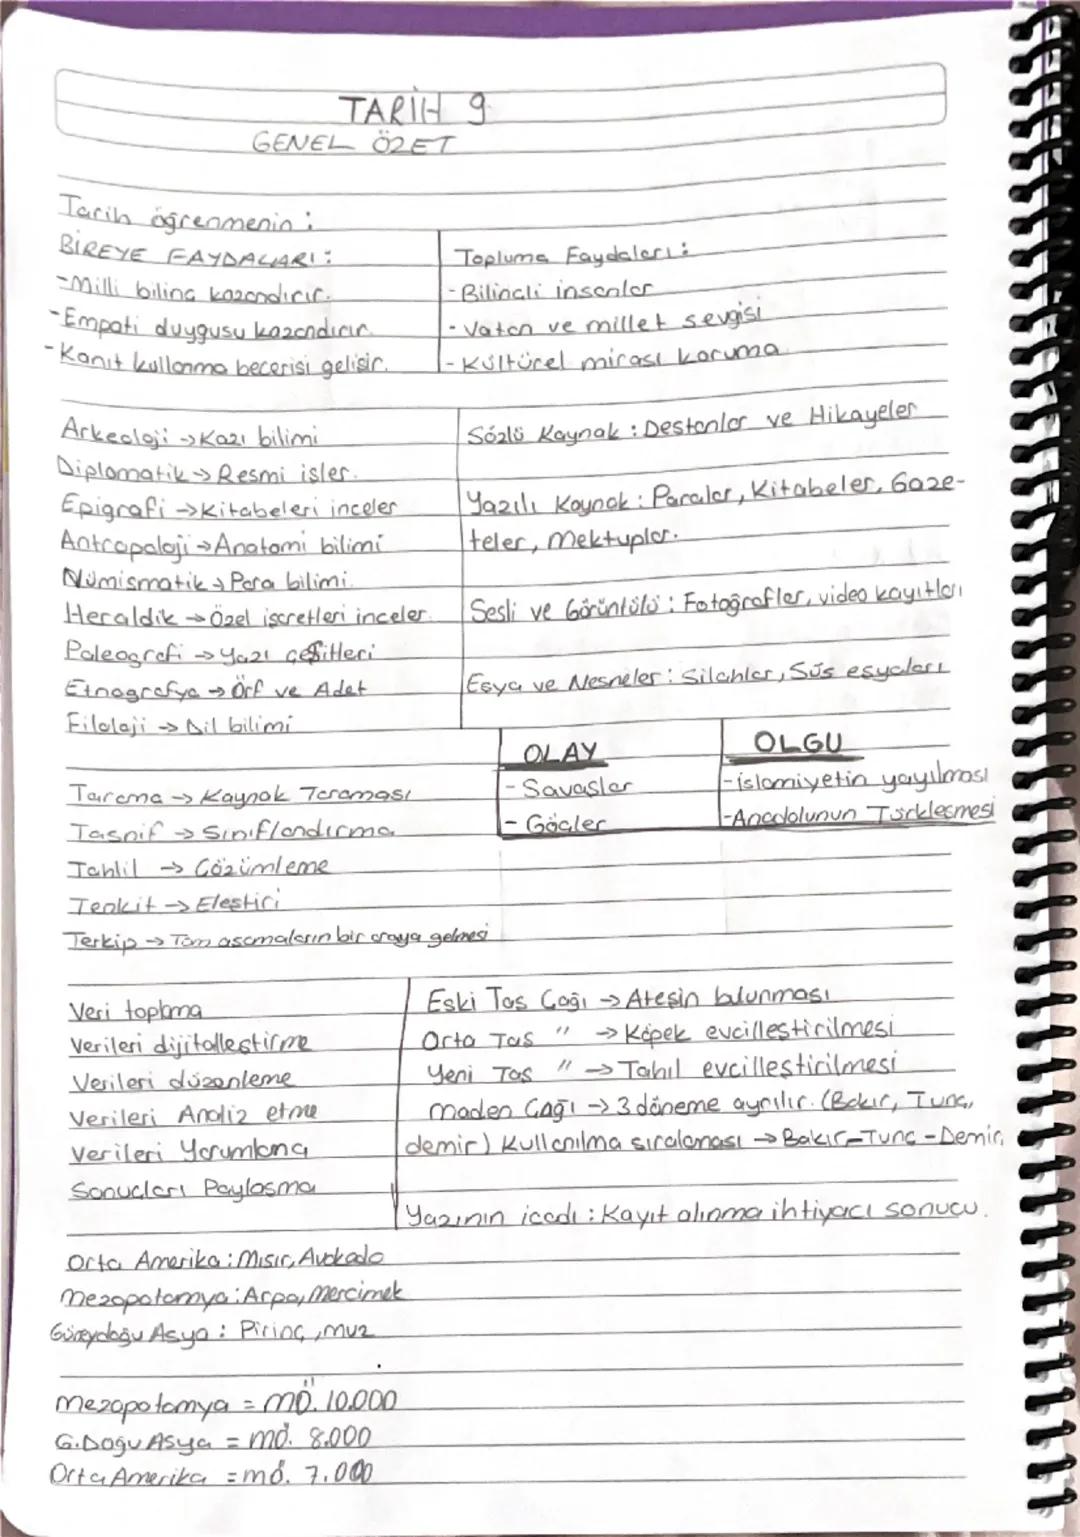 TARİH 9
GENEL ÖZET
Tarih öğrenmenin :
BİREYE FAYDALARI :
-Milli bilinç kazandırır.
-Empati duygusu kazandırır.
-Kanıt kullanma becerisi gelişir.
Topluma Faydaları :
-Bilinçli insanlar
-Vatan ve millet sevgisi
-Kültürel mirası koruma
Arkeoloji → Kazı bilimi
Diplomatik → Resmi işler.
Epigrafi → Kitabeleri inceler
Antropoloji → Anatomi bilimi
Nümismatik → Para bilimi.
Heraldik → Özel işaretleri inceler.
Paleografi → Yazı çeşitleri
Etnografya → Örf ve Adet
Filoloji → Dil bilimi
Sözlü Kaynak : Destanlar ve Hikayeler
Yazılı Kaynak : Paralar, Kitabeler, Gaze-
teler, Mektuplar.
Sesli ve Görüntülü : Fotoğraflar, video kayıtları
Eşya ve Nesneler : Silahlar, Süs eşyaları
OLAY
- Savaşlar
- Göçler
OLGU
-islamiyetin yayılması
-Anadolunun Türkleşmesi
Tarama → Kaynak Taraması
Tasnif → Sınıflandırma
Tahlil → Çözümleme
Tenkit → Eleştiri
Terkip → Tüm aşamaların bir araya gelmesi
Veri toplama
Verileri dijitalleştirme
Verileri düzenleme
Verileri Analiz etme
Verileri Yorumlama
Sonuçları Paylaşma
Eski Taş Çağı → Ateşin bulunması
Orta Taş " → Köpek evcilleştirilmesi
Yeni Taş " → Tahıl evcilleştirilmesi
Maden Çağı → 3 döneme ayrılır. (Bakır, Tunç,
demir) Kullanılma sıralaması → Bakır-Tunç-Demir.
Yazının icadı : Kayıt alınma ihtiyacı sonucu.
Orta Amerika : Mısır, Avokado
Mezopotamya : Arpa, Mercimek
Güneydoğu Asya : Pirinç, muz
Mezopotamya = MÖ. 10.000
G.Doğu Asya = mö. 8.000
Orta Amerika = mö. 7.000